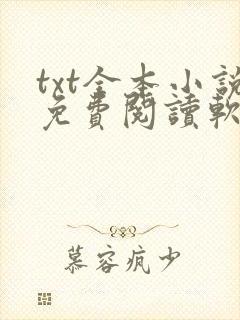 txt全本小說
免費閱讀軟
慕容疯少